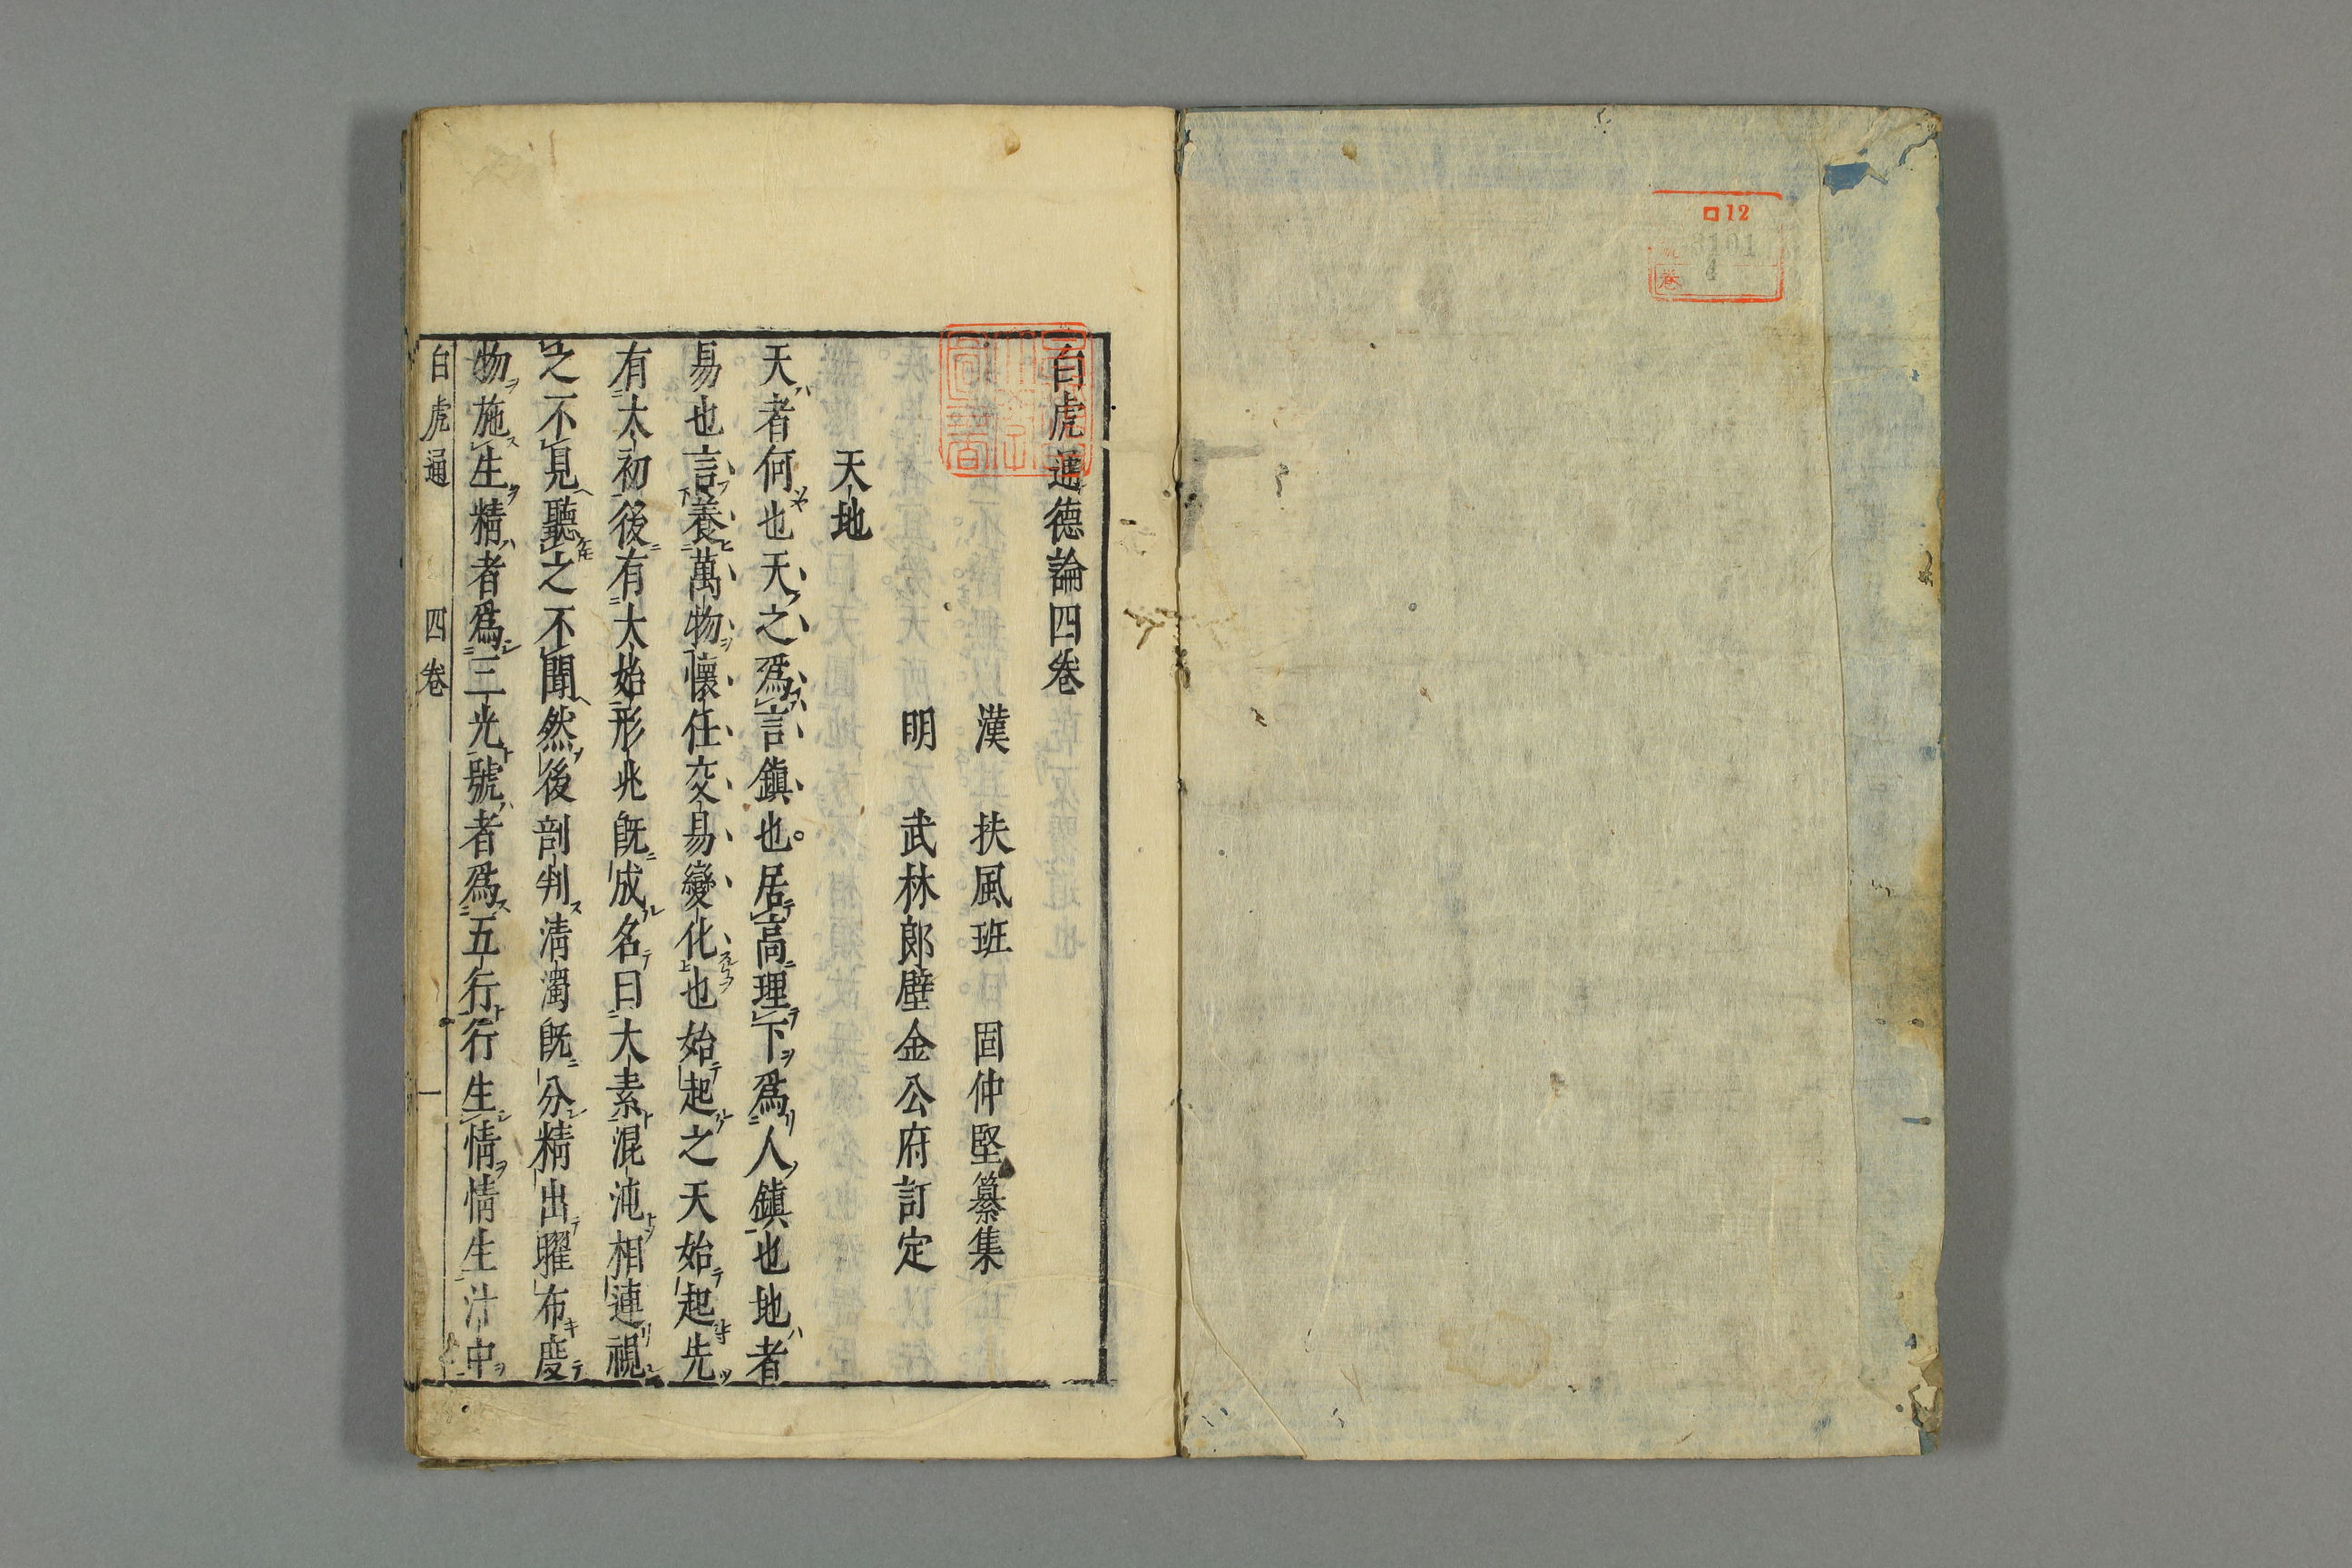 ロ12
3101
4
巻
白虎通德論四卷
漢 扶風班 固仲堅纂集
明 武林郎壁金公府訂定
天地
天者何也天之爲言鎮也居高理下爲人鎮也地者
易也言養萬物懷任交易變化也始起之天始起先
有太初後有太始形兆既成名曰太素混沌相連視
之不見聽之不聞然後剖判清濁既分精出曜布度
物施生精者爲三光號者爲五行行生情情生汁中
白虎通 四卷 一